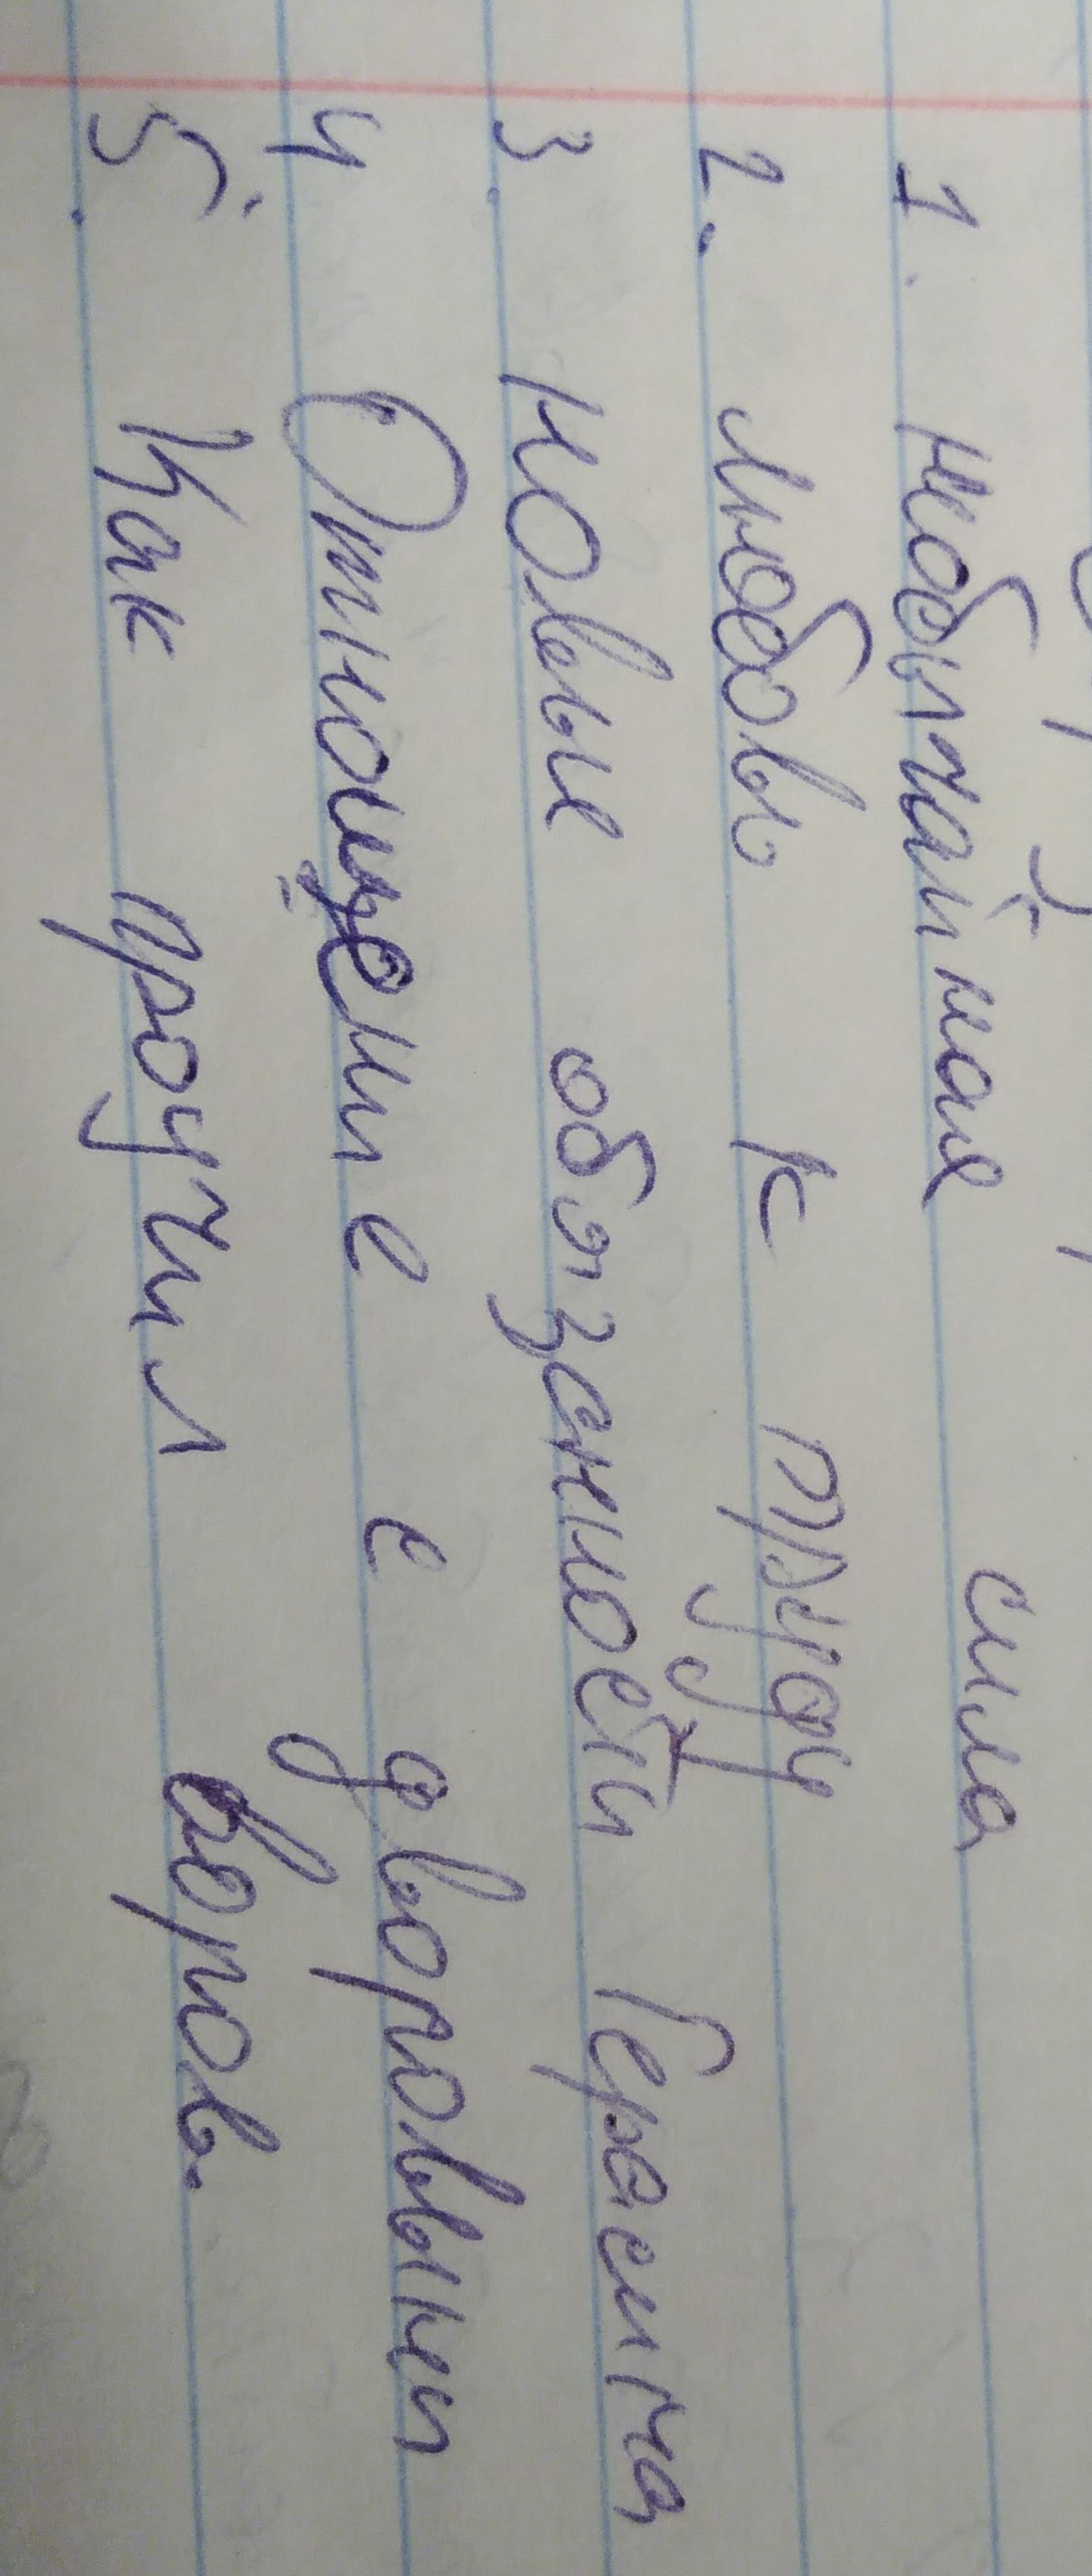 1. необычайная сила
2. любовь к труду
3. новые обязанности Герасима
4. Отношение с дворовыми
5. Как проучил воров.